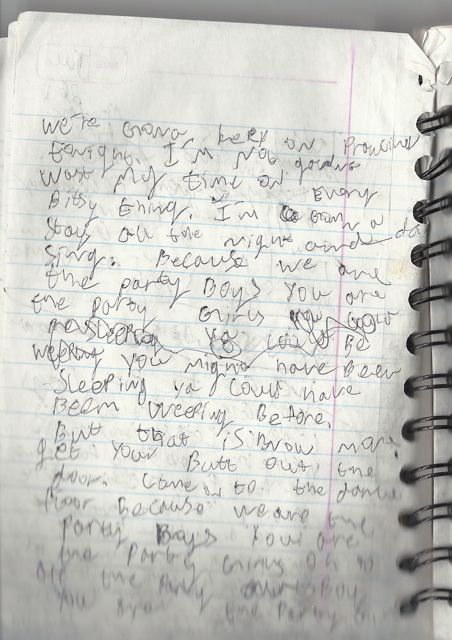 we're gonna keep on
tonight. I'm Not gonna
Wast my time on Every
Bitsy thing. I'm gonna
Stay all the night and da
Sing. Because we are
the party Boys You are
the party Girls
weeping you might have Been
Sleeping ya could have
Been Weeping Before.
But that is now more
get your Butt out the
door. come to the dance
floor Because we are the
Party Boys You are
the Party
the Party Boy
You are the Party